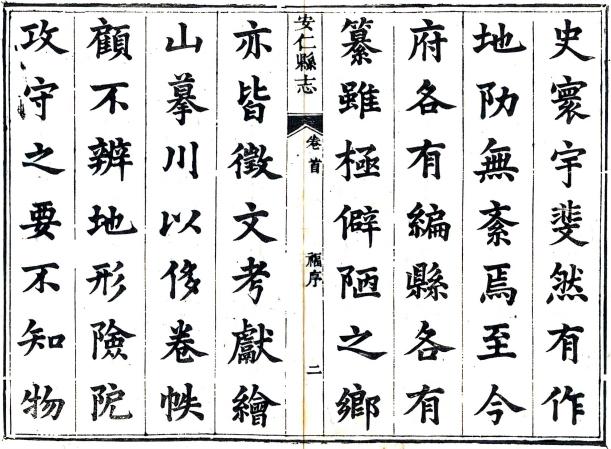 史寰宇斐然有作
地阞無紊焉至今
府各有編縣各有
纂雖極僻陋之鄉
安仁縣志
卷首
福序
二
亦皆徵文考獻繪
山摹川以侈卷帙
顧不辨地形險阨
攻守之要不知物